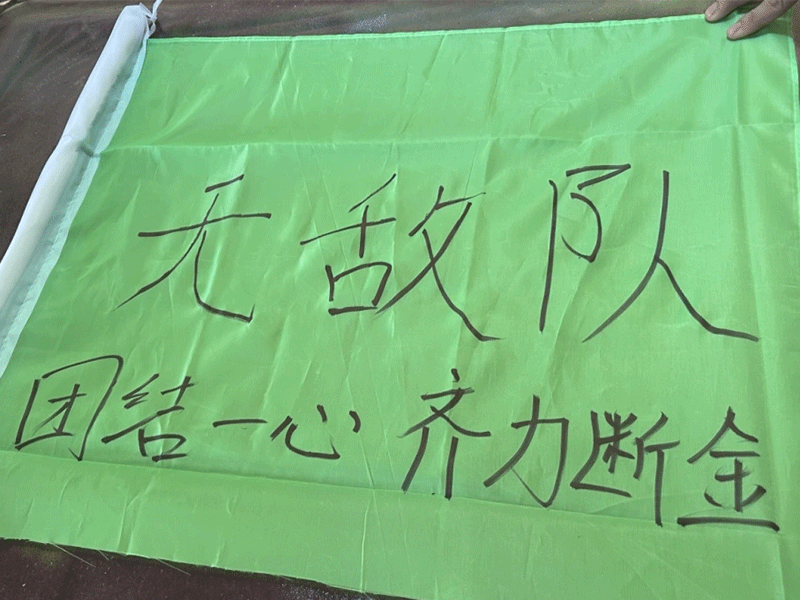 无敌队
团结一心 齐力断金